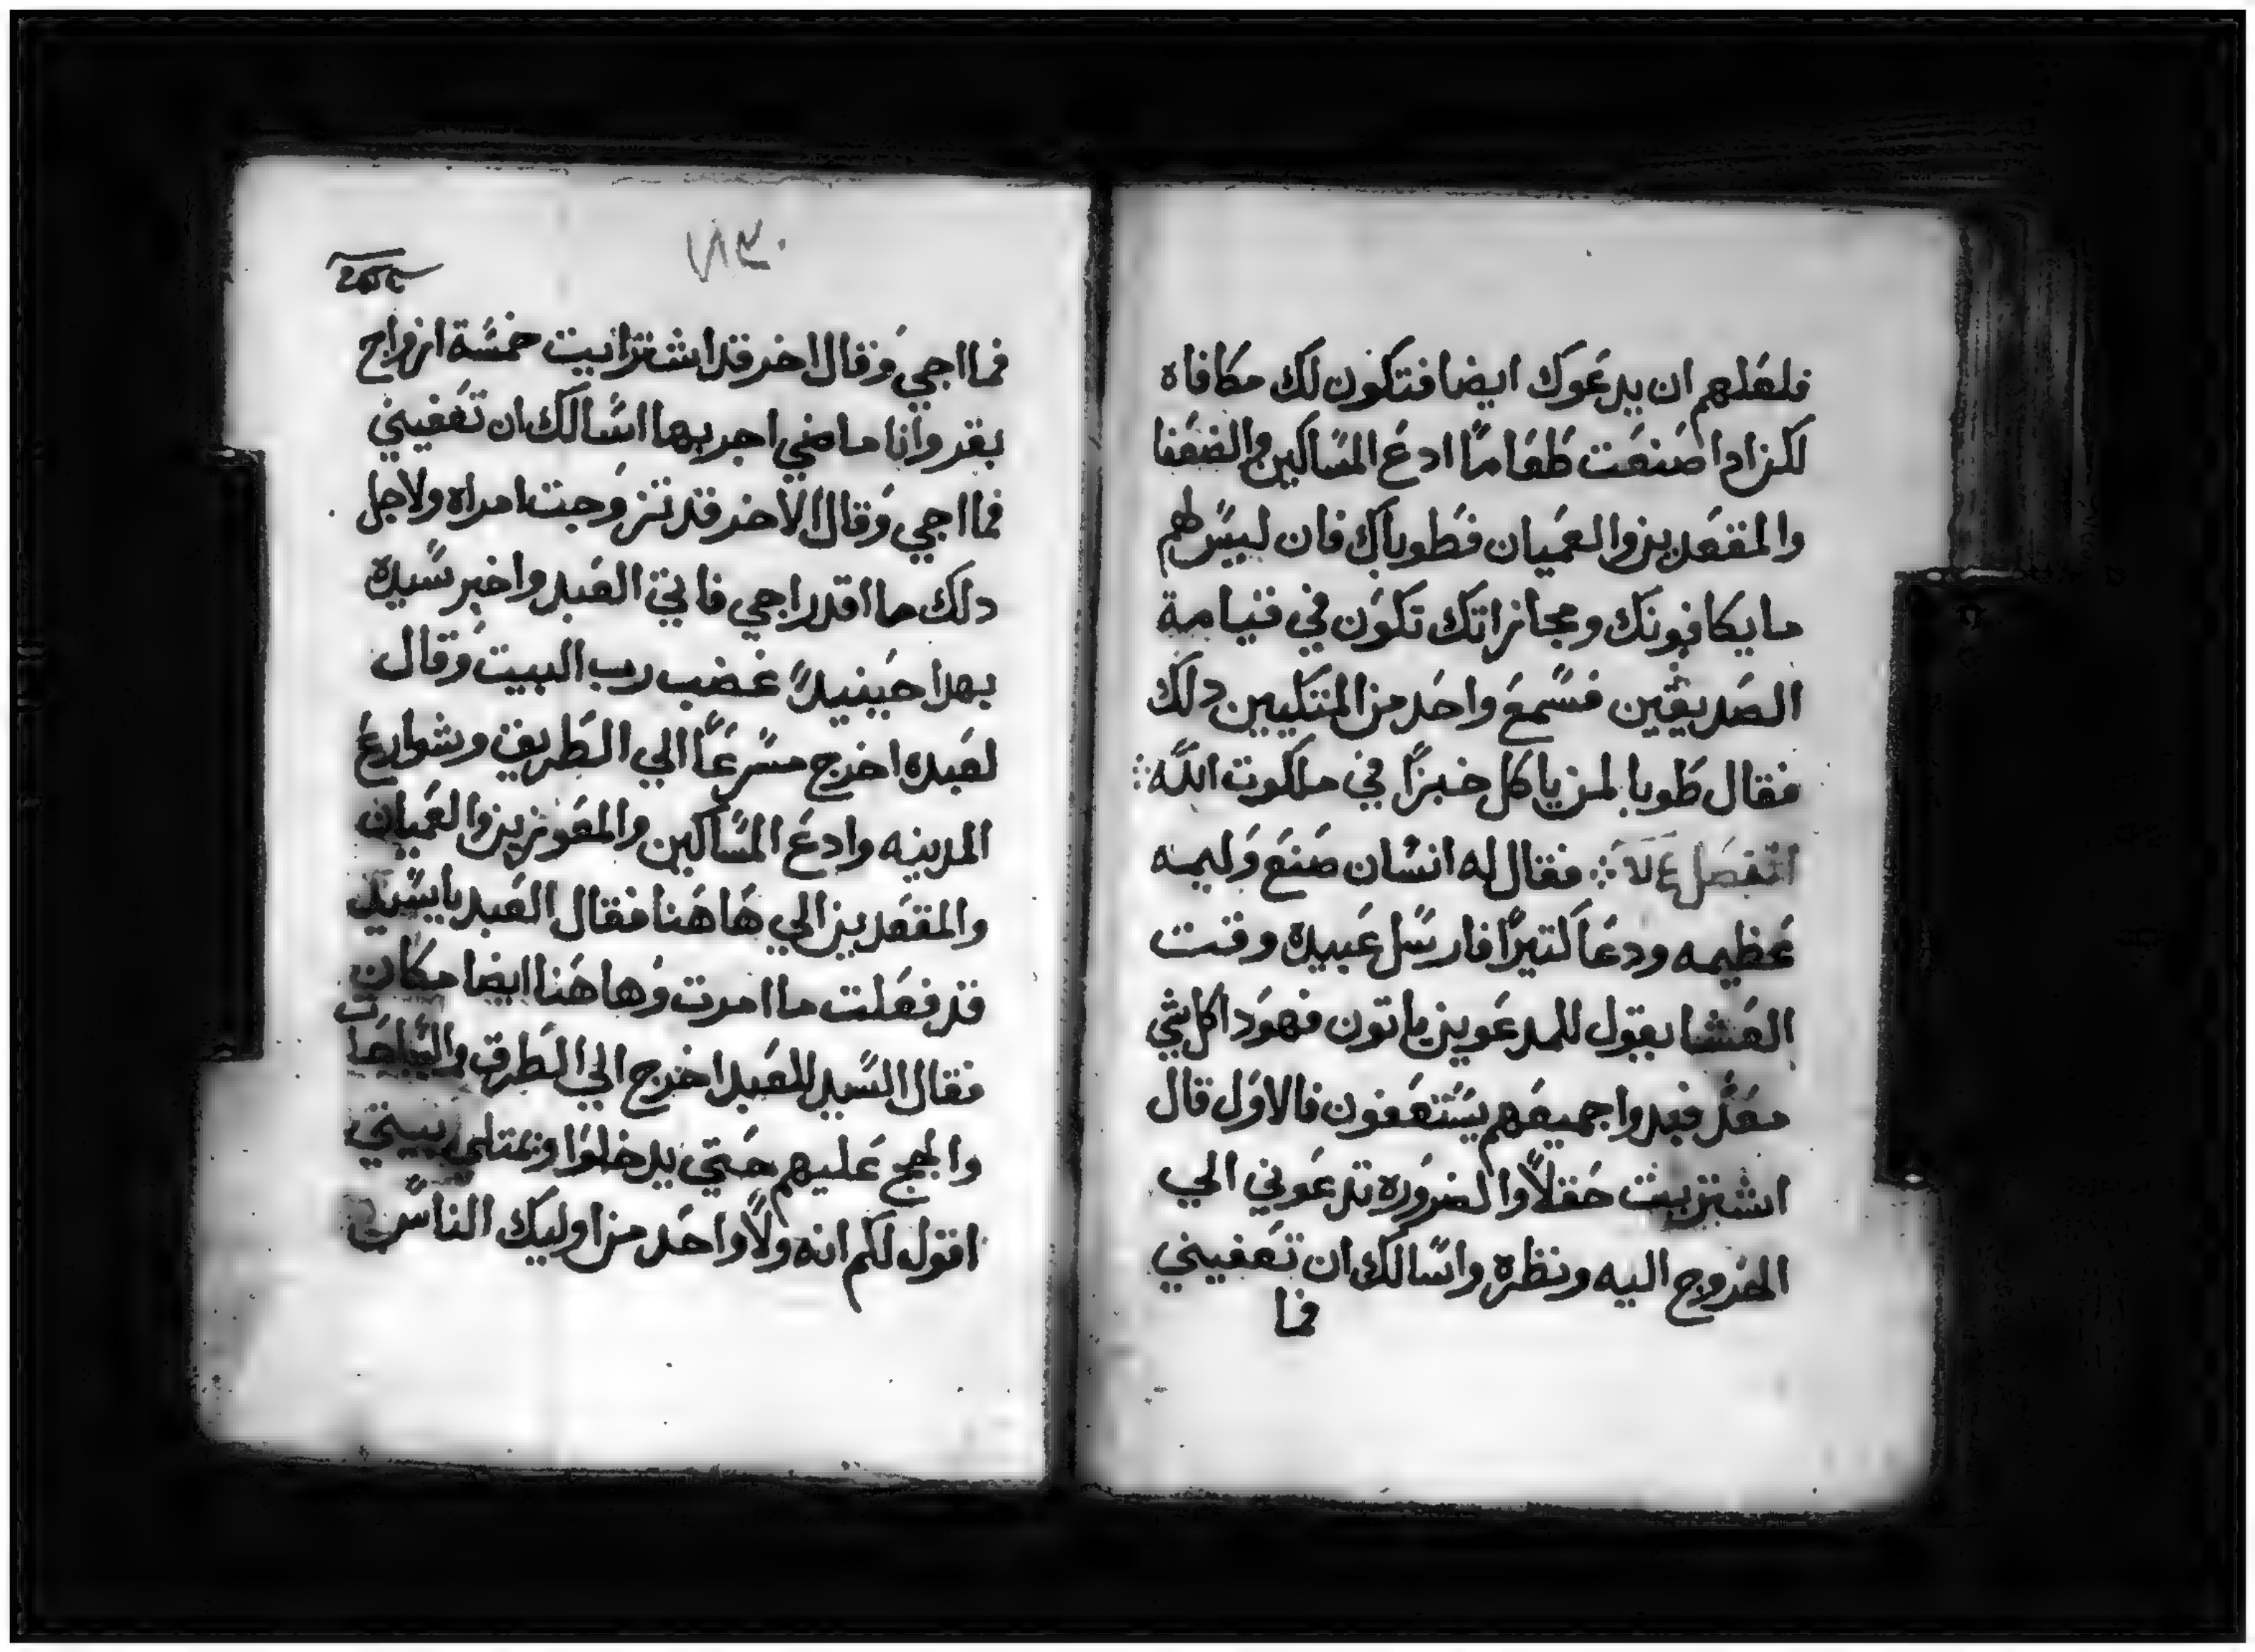 فلعلهم ان يدعوك ايضا فتكون لك مكافاه
لكن ادا صنعت طعاما ادع المساكين والضعفا
والمقعدين والعميان فطوباك فان ليس لهم
ما يكافونك ومجازاتك تكون في قيامة
الصديقين فسمع واحد من المتكيين دلك
فقال طوبا لمن ياكل خبزا في ملكوت الله
فقال له انسان صنع وليمه
عظيمه ودعا كتيرا فارسل عبيده وقت
العشا يقول للمدعوين ياتون فهودا كل شي
معد فبدوا جميعهم يستعفون فالاول قال
اشتريت حقلا والضروره تدعوني الي
الخروج اليه ونظره واسالك ان تعفيني
فما
١٣٠
فما اجي وقال اخر قد اشترايت خمسة ازواج
بقر وانا ماضي اجربها اسالك ان تعفيني
فما اجي وقال الاخر قد تزوجت امراه ولاجل
دلك ما اقدر اجي فاتي العبد واخبر سيده
بهدا حينيد غضب رب البيت وقال
لعبده اخرج مسرعا الي الطريق وشوارع
المدينه وادع المساكين والمعوزين والعميان
والمقعدين الي هاهنا فقال العبد ياسيد
قد فعلت ما امرت وهاهنا ايضا مكان
فقال السيد للعبد اخرج الي الطرق والسياجات
والجج عليهم حتي يدخلوا ويمتلي بيتي
اقول لكم انه ولا واحد من اوليك الناس